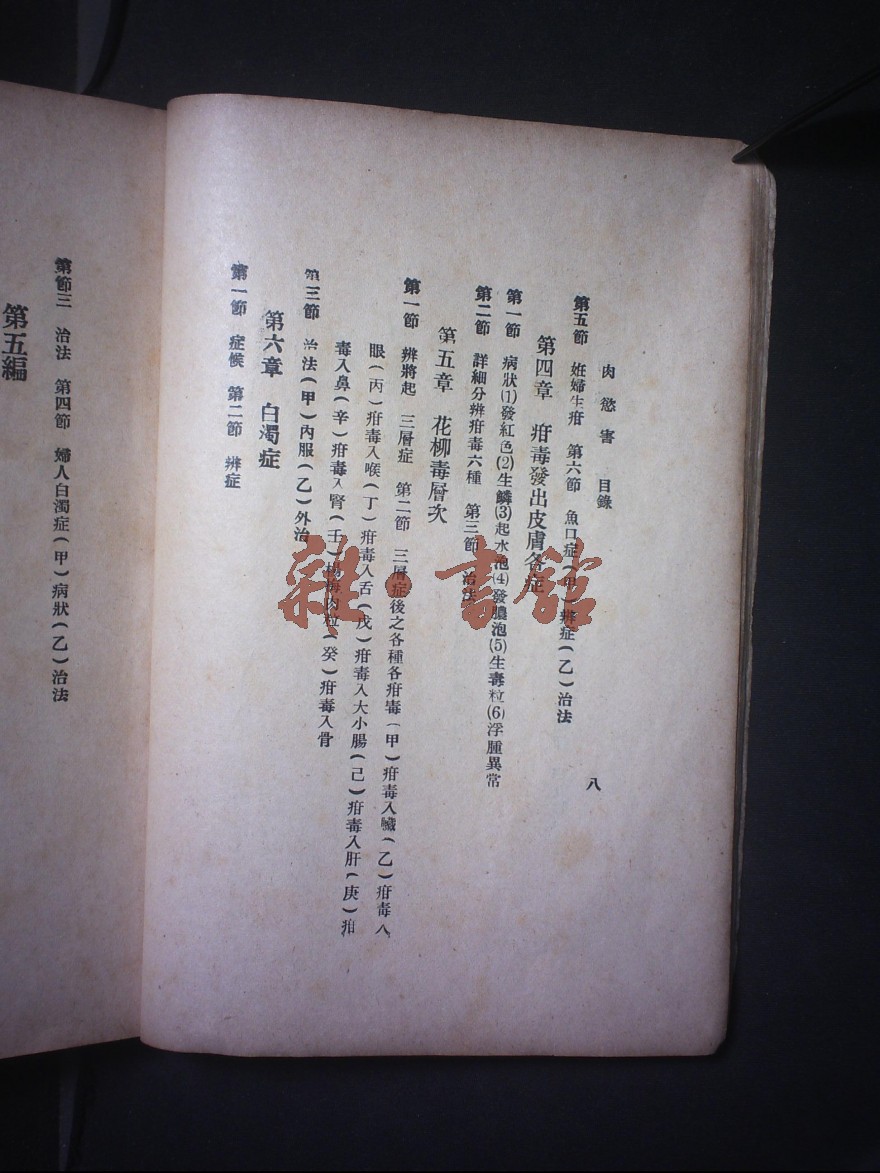 肉慾害 目錄 八
第五節 姙婦生疳 第六節 魚口症(甲)辨症(乙)治法
第四章 疳毒發出皮膚各症
第一節 病狀(1)發紅色(2)生鱗(3)起水泡(4)發膿泡(5)生毒粒(6)浮腫異常
第二節 詳細分辨疳毒六種 第三節 治法
第五章 花柳毒層次
第一節 辨將起 三層症 第二節 三層症後之各種各疳毒(甲)疳毒入臟(乙)疳毒入
眼(丙)疳毒入喉(丁)疳毒入舌(戊)疳毒入大小腸(己)疳毒入肝(庚)疳
毒入鼻(辛)疳毒入腎(壬)楊梅肉粒(癸)疳毒入骨
第三節 治法(甲)內服(乙)外治
第六章 白濁症
第一節 症候 第二節 辨症
第節三 治法 第四節 婦人白濁症(甲)病狀(乙)治法
第五編
雜·書館